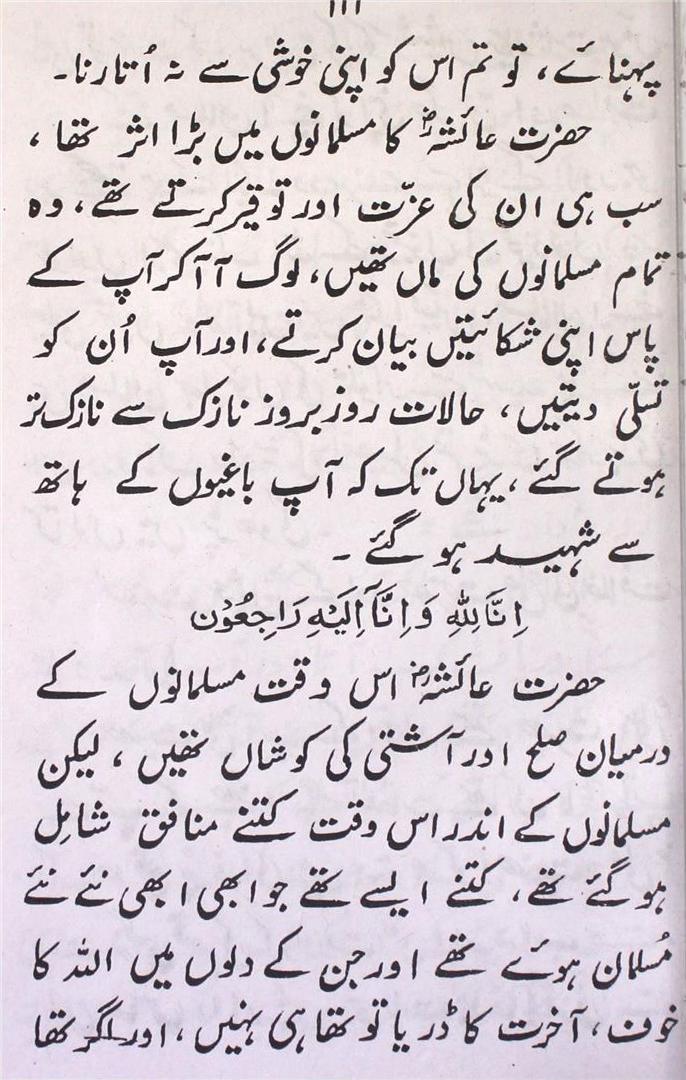 ۱۱۱
پہنائے، تو تم اس کو اپنی خوشی سے نہ اُتارنا۔
حضرت عائشہؓ کا مسلمانوں میں بڑا اثر تھا،
سب ہی ان کی عزّت اور توقیر کرتے تھے، وہ
تمام مسلمانوں کی ماں تھیں، لوگ آآکر آپ کے
پاس اپنی شکائتیں بیان کرتے، اور آپ اُن کو
تسلّی دیتیں، حالات روز بروز نازک سے نازک تر
ہوتے گئے، یہاں تک کہ آپ باغیوں کے ہاتھ
سے شہید ہو گئے۔
اِنَّا لِلّٰہِ وَاِنَّآ اِلَیْہِ رَاجِعُوْن
حضرت عائشہؓ اس وقت مسلمانوں کے
درمیان صلح اور آشتی کی کوشاں تھیں، لیکن
مسلمانوں کے اندر اس وقت کتنے منافق شامِل
ہو گئے تھے، کتنے ایسے تھے جو ابھی ابھی نئے نئے
مُسلمان ہوئے تھے اور جن کے دلوں میں اللہ کا
خوف، آخرت کا ڈر یا تو تھا ہی نہیں، اور اگر تھا